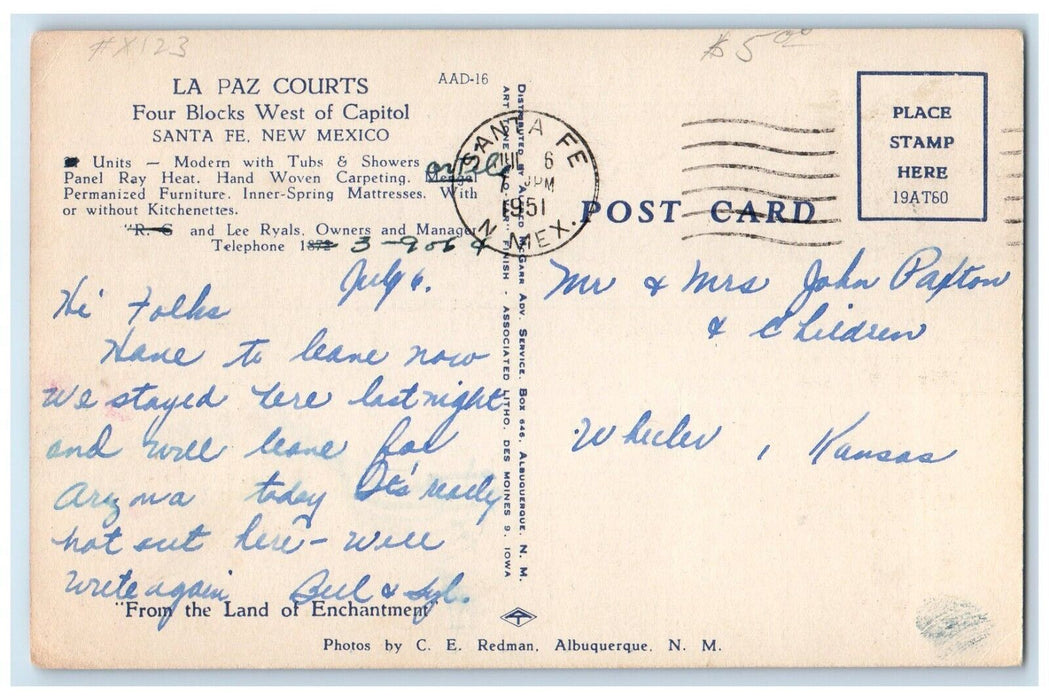 #X123
$5.00
LA PAZ COURTS
AAD-16
Four Blocks West of Capitol
SANTA FE, NEW MEXICO
Units — Modern with Tubs & Showers
Panel Ray Heat. Hand Woven Carpeting. Mengel
Permanized Furniture. Inner-Spring Mattresses. With
or without Kitchenettes.
and Lee Ryals, Owners and Manager
Telephone 3-9064
July 6.
Hi Folks
Have to leave now
We stayed here last night
and will leave for
Arizona today It's really
hot out here - will
write again Bill & Syl.
"From the Land of Enchantment"
Photos by C. E. Redman, Albuquerque, N. M.
Distributed by Alfred McGarr Adv. Service, Box 646, Albuquerque, N. M.
FINISH - ASSOCIATED LITHO. DES MOINES 9, IOWA
SANTA FE
JUL 6
PM
1951
N. MEX.
POST CARD
PLACE
STAMP
HERE
19AT60
Mr & Mrs John Paxton
& Children
Wheeler, Kansas